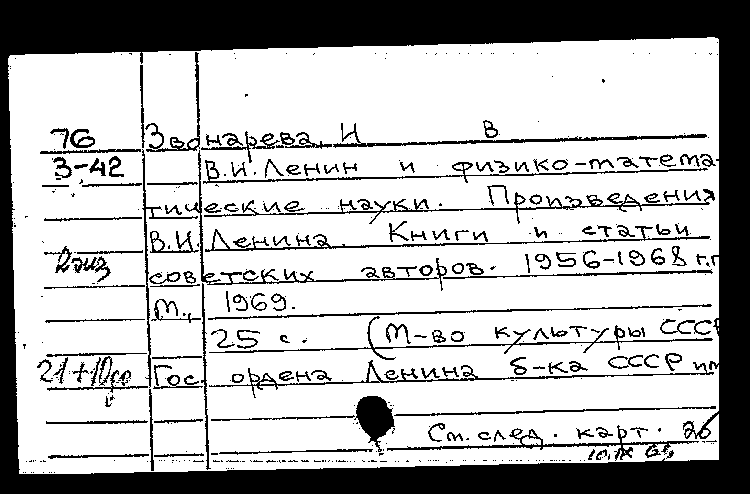 76 Звонарева, И В
З-42 В.И. Ленин и физико-матема-
тические науки. Произведения
В.И. Ленина. Книги и статьи
2 экз советских авторов. 1956-1968 г.г
М., 1969.
25 с. (М-во культуры СССР
Гос. ордена Ленина б-ка СССР им
См. след. карт. 26
10.IX 69